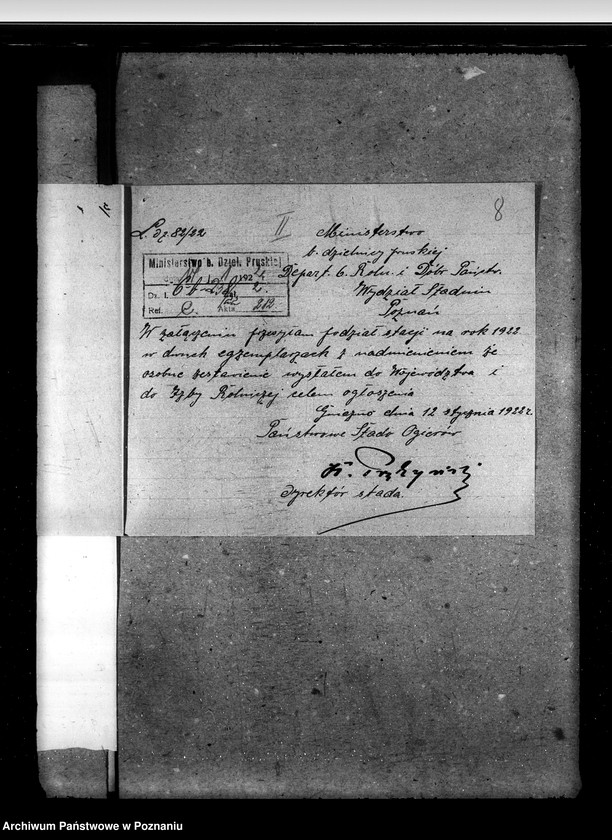 8
L. dz. 82/22
II
Ministerstwo
b. dzielnicy pruskiej
Depart. C. Roln. i Dóbr Państw.
Wydział Stadnin
Poznań
Ministerstwo b. Dzieł. Pruskiej
192
Dz. I.
Ref. C. Akta
W załączeniu przesyłam podział stacji na rok 1922
w dwuch egzemplarzach z nadmienieniem że
osobne zestawienie wysłałem do Województwa i
do Izby Rolniczej celem ogłoszenia
Gniezno dnia 12 stycznia 1922 r.
Państwowe Stado Ogierów
dyrektór stada.
Archiwum Państwowe w Poznaniu